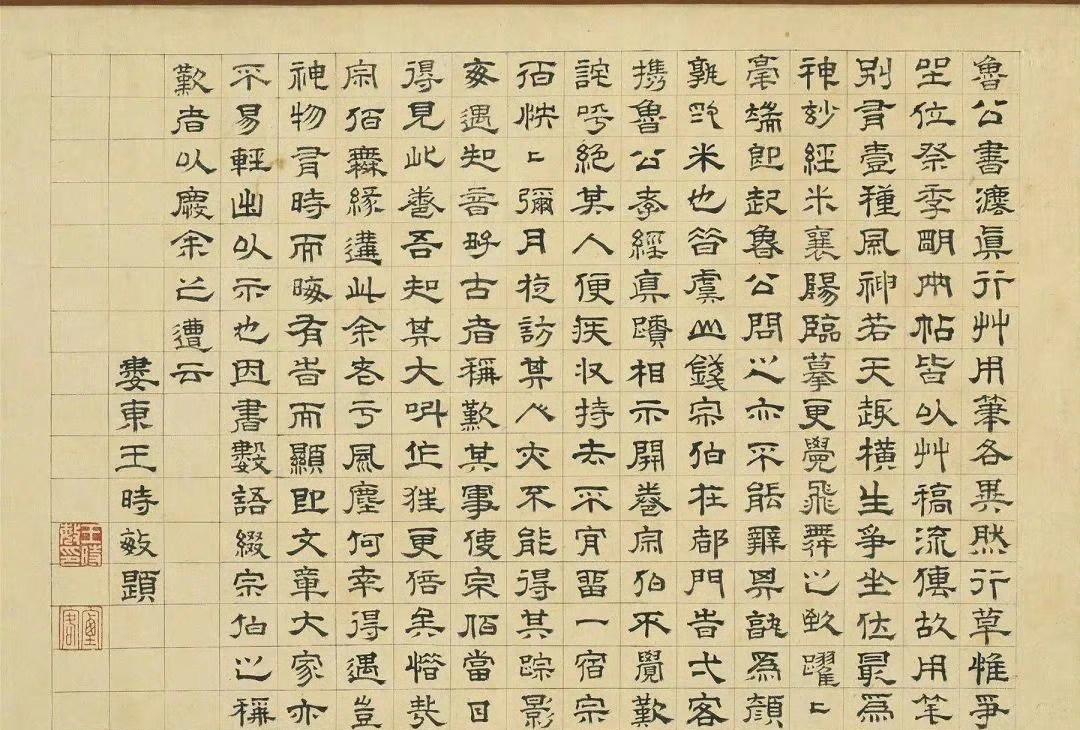 魯公書灋真行艸用筆各異然行草惟爭
坐位祭季明兩帖皆以艸稿流傳故用笔
別有壹種風神若天趣橫生爭坐位最為
神妙經米襄陽臨摹更覺飛舞之致躍=
毫端即起魯公問之亦不能辨為顏
孰米也昔虞山錢宗伯在都門客
攜魯公孝經真蹟相示開卷宗伯不覺歎
詫呼絕其人便疾收持去不肎畱一宿宗
伯怏=彌月訪其人不能得其踪影
每遇知音好古者稱歎其事使宗伯當日
得見此卷吾知其大叫作狂更倍矣惜哉
宗伯無緣遘此余老于風塵何幸得遇豈
神物有時而晦有時而顯即文章大家亦
不易輕出以示也因書數語綴宗伯之稱
歎者以慶余之遭云
婁東王時敏題
王時敏印